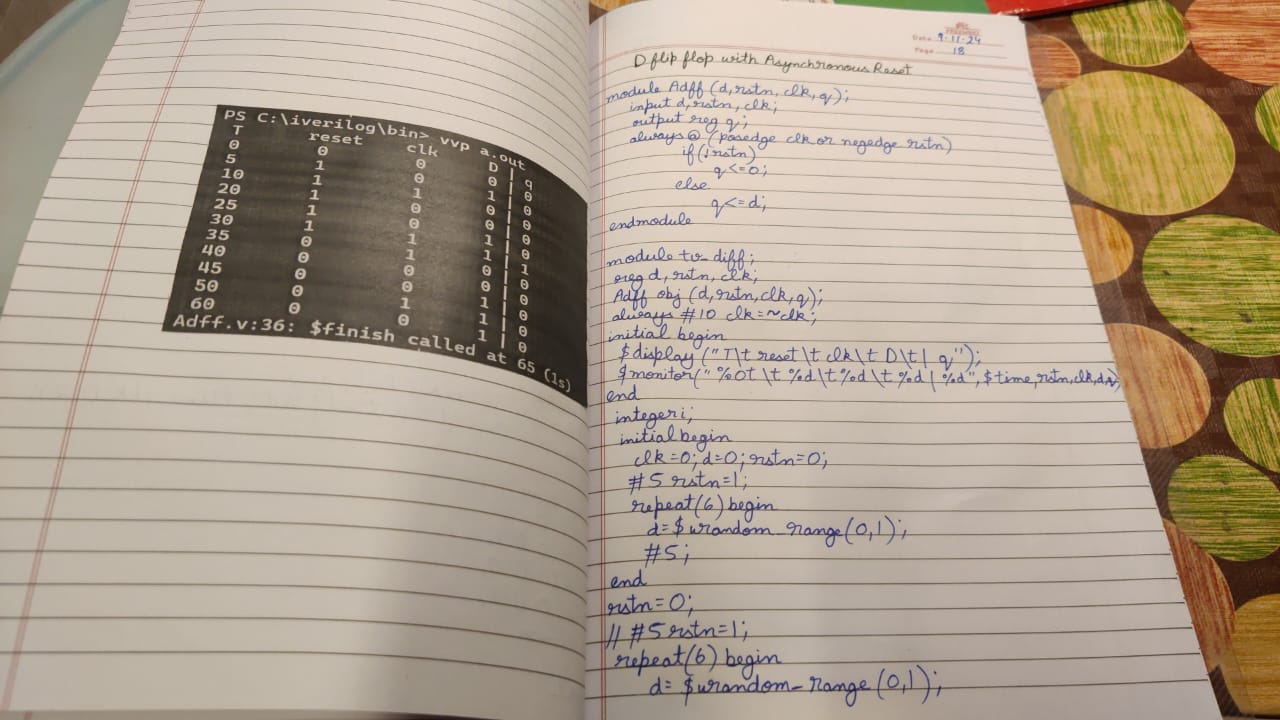 PS C:\iverilog\bin> vvp a.out
T reset clk D | q
0 0 0 0 | 0
5 1 0 1 | 0
10 1 1 0 | 0
20 1 0 0 | 0
25 1 0 1 | 0
30 1 1 1 | 1
35 0 1 0 | 0
40 0 0 0 | 0
45 0 0 1 | 0
50 0 1 1 | 0
60 0 0 1 | 0
Adff.v:36: $finish called at 65 (1s)
Date 9-11-24
Page 18
D flip flop with Asynchronous Reset
module Adff (d,rstn,clk,q);
input d,rstn,clk;
output reg q;
always@ (posedge clk or negedge rstn)
if(!rstn)
q<=0;
else
q<=d;
endmodule
module tv_diff;
reg d,rstn,clk;
Adff obj (d,rstn,clk,q);
always #10 clk=~clk;
initial begin
$display ("T\t reset \t clk\t D\t| q");
$monitor(" %0t \t %d\t%d\t %d | %d",$time,rstn,clk,d,q)
end
integer i;
initial begin
clk=0; d=0; rstn=0;
#5 rstn=1;
repeat(6) begin
d=$urandom_range(0,1);
#5;
end
rstn=0;
// #5 rstn=1;
repeat(6) begin
d= $urandom_range (0,1);